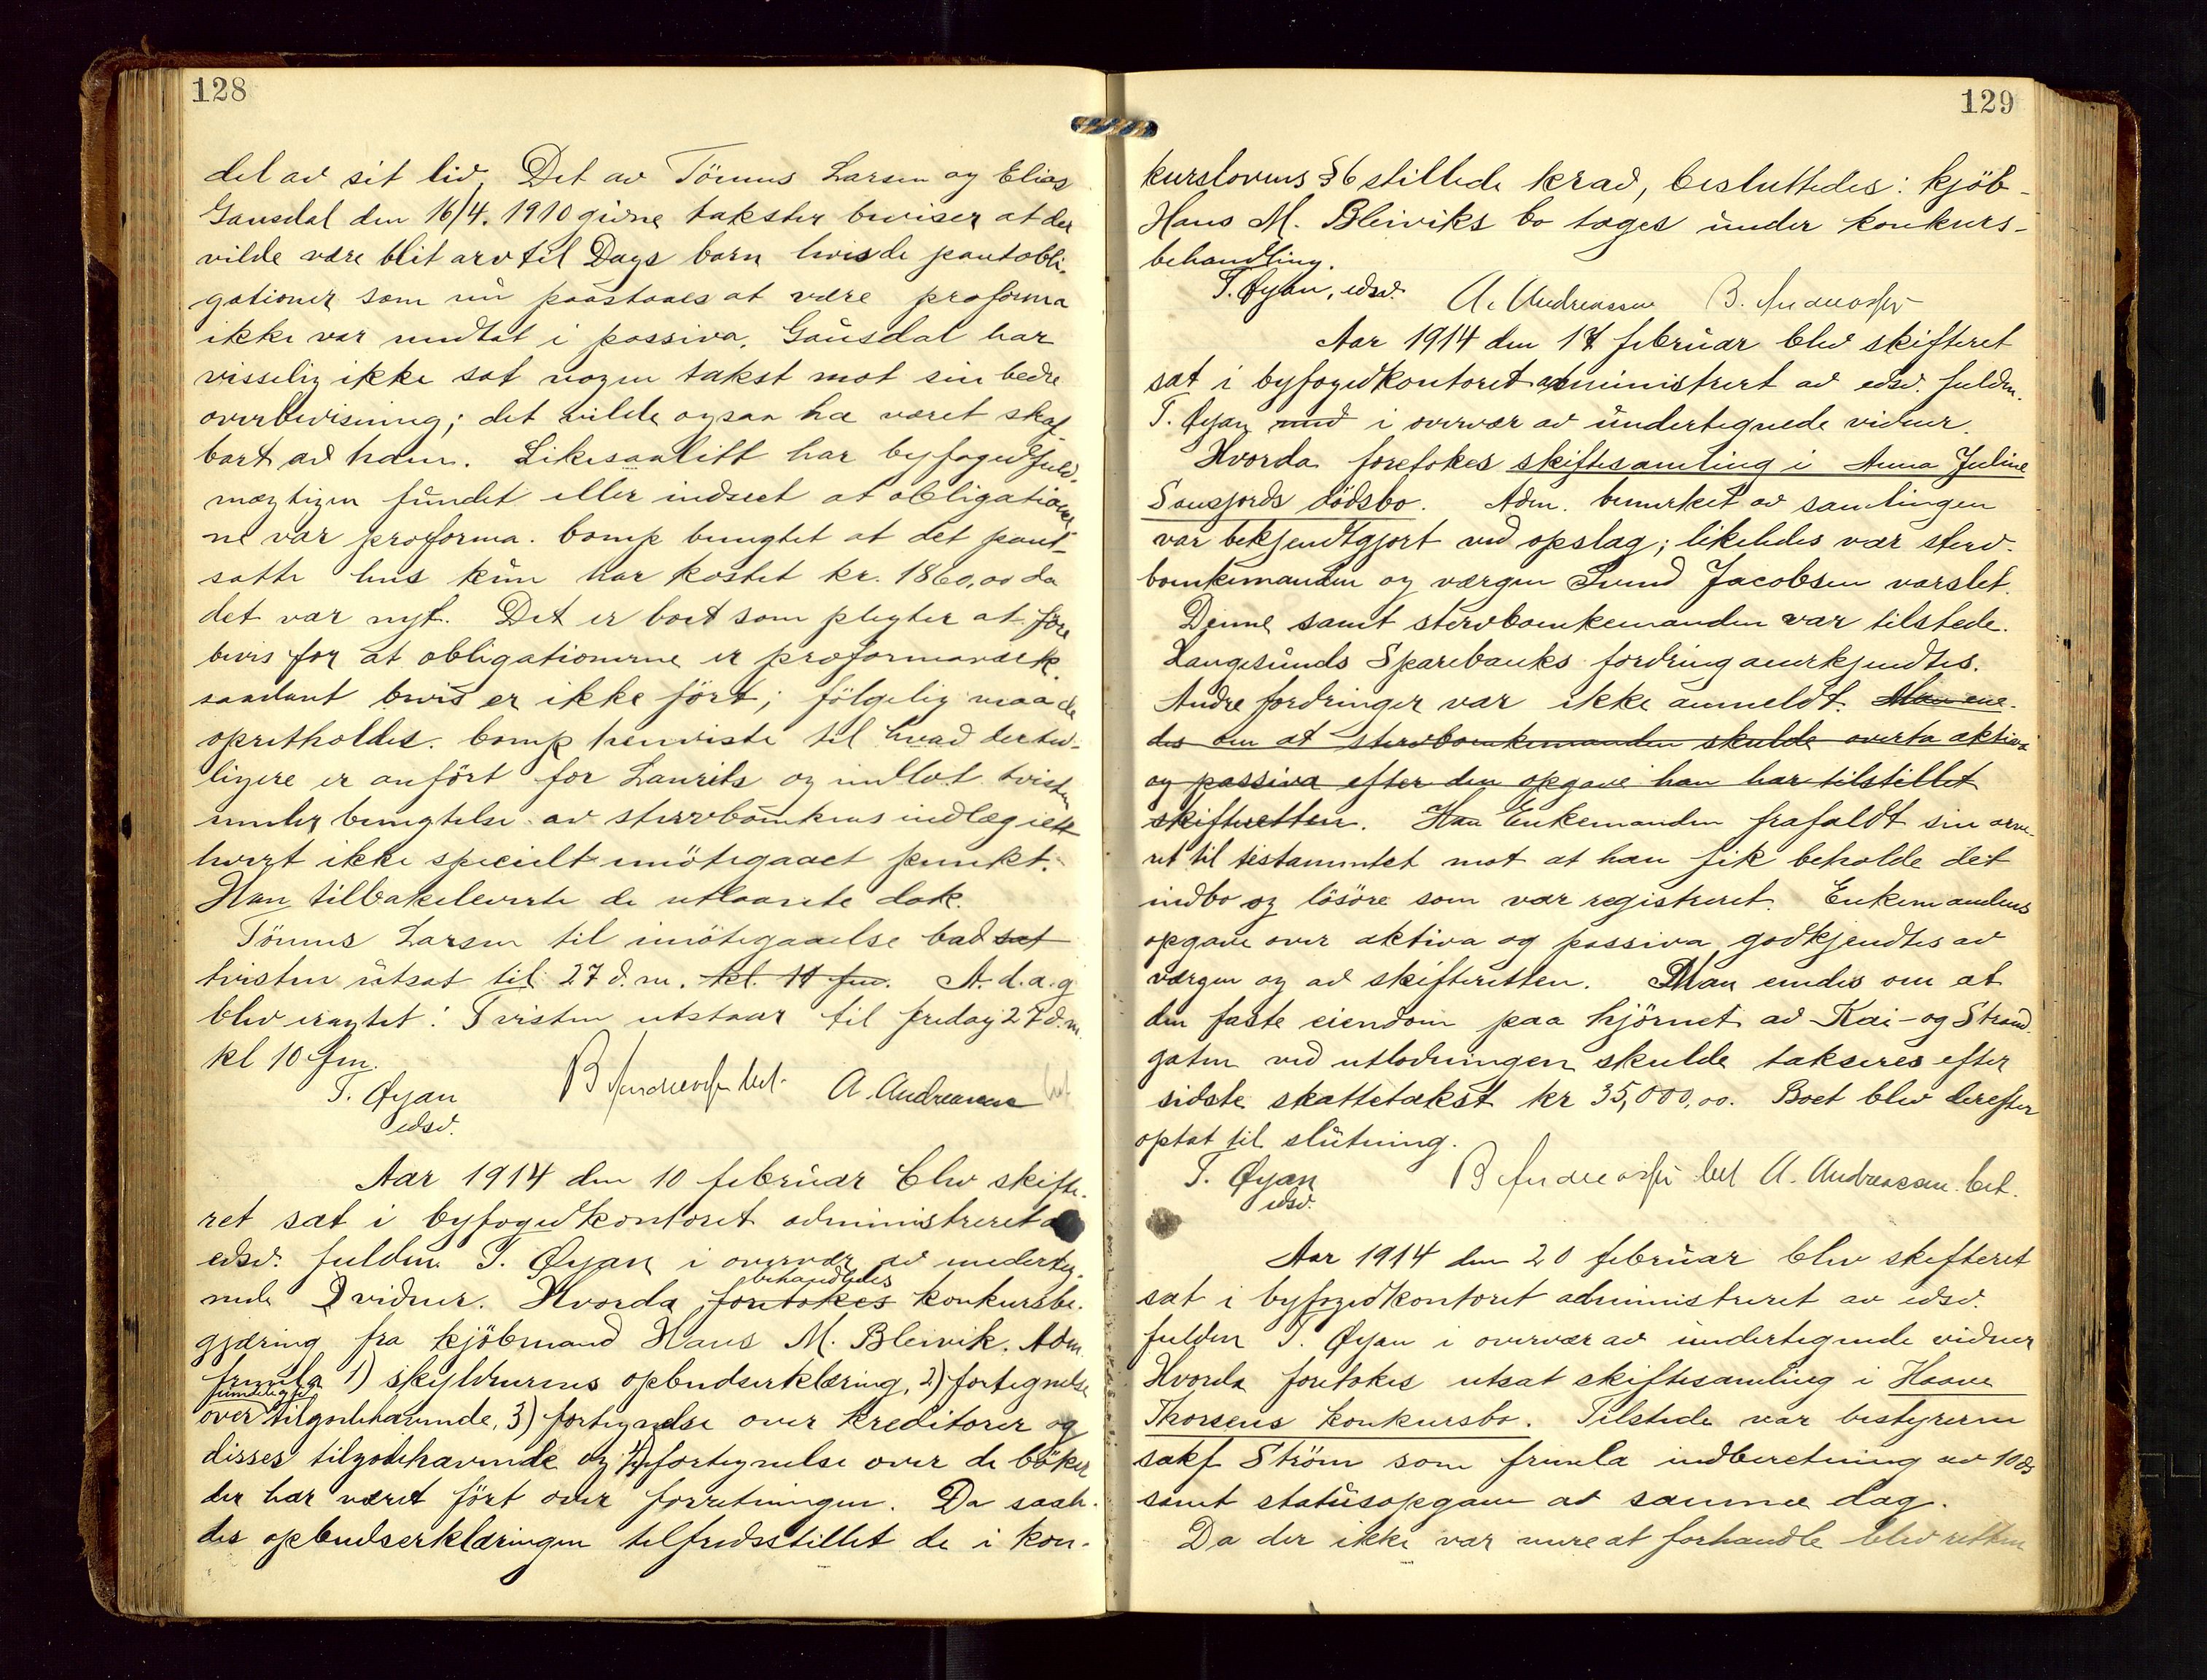 128
del av sit liv. Det av Tönnes Larsen og Elias
Gausdal den 16/4. 1910 givne takster beviser at der
vilde være blit arv til Dags barn hvis de pantobli-
gationer som nu paastaaes at være proforma
ikke var medtat i passiva. Gausdal har
visselig ikke sat nogen takst mot sin bedre
overbevisning; det vilde ogsaa ha været skaf-
bart av ham. Likesaalitt har byfogedfuld-
mægtigen fundet eller indseet at obligatione-
ne var proforma. Comp benegtet at det pant-
satte hus kun har kostet kr. 1860,00 da
det var nyt. Det er boet som pligter at före
bevis for at obligationerne er proformaverk.
saadant bevis er ikke fört; fölgelig maa de
opretholdes. Comp henviste til hvad dertid-
ligere er anfört for Laurits og indlot tvisten
under benegtelse av stervboenkens indlæg i ett-
hvert ikke specielt imötegaaet punkt.
Han tilbakeleverte de utlaante dok.
Tönnes Larsen til imötegaaelse bad sat
tvisten utsat til 27 d.m. kl. 11 fm. A.d.a.g
blev eragtet: Tvisten utstaar til fredag 27 d.m.
kl 10 fm.
T. Øyan B Andreassen bet. A. Andreassen
edsv.
Aar 1914 den 10 februar blev skifte-
ret sat i byfogedkontoret administreret a
edsv. fuldm. T. Øyan i overvær av underteg-
behandledes
nede 2 vidner. Hvorda foretokes konkursbe-
gjæring fra kjöbmand Hans M. Bleivik. Adm.
fremla 1) skyldnerens opbudserklæring, 2) fortegnelse
over tilgodehavende, 3) fortegnelse over kreditorer og
disses tilgodehavende og 4) fortegnelse over de böker
der har været fört over forretningen. Da saale-
des opbudserklæringen tilfredsstillet de i kon-
129
kurslovens §6 stillede krav, besluttedes: kjöb-
Hans M. Bleiviks bo tages under konkurs-
behandling.
T. Øyan, edsv. A. Andreassen B. Andreassen
Aar 1914 den 17 februar blev skifteret
sat i byfogedkontoret administrert av edsv. fuldm.
T. Øyan med i overvær av undertegnede vidner.
Hvorda foretokes skiftesamling i Anna Juline
Sansjords dödsbo. Adm. bemerket av samlingen
var bekjendtgjort ved opslag; likeledes var sterv-
boenkemanden og vergen Svend Jacobsen varslet.
Denne samt stervboenkemanden var tilstede.
Langesunds Sparebanks fordring anerkjendtes.
Andre fordringer var ikke anmeldt. Man ene-
des om at stervboenkemanden skulde overta aktiva
og passiva efter den opgave han har tilstillet
skifteretten. Han Enkemanden frafaldt sin arve-
ret til testamentet mot at han fik beholde det
indbo og lösöre som var registreret. Enkemandens
opgave over aktiva og passiva godkjendtes av
værgen og av skifteretten. Man enedes om at
den faste eiendom paa hjörnet av Kai- og Strand-
gaten ved utlodningen skulde takseres efter
sidste skattetakst kr 35,000,00. Boet blev derefter
optat til slutning.
T. Øyan B Andreassen bet A. Andreassen bet.
edsv.
Aar 1914 den 20 februar blev skifteret
sat i byfogedkontoret administreret av edsv.
fuldm T. Øyan i overvær av undertegnede vidner
Hvorda foretokes utsat skiftesamling i Haave
Thorsens konkursbo. Tilstede var bestyreren
sakf Ström som fremla indberetning av 10 ds
samt statusopgave av samme dag.
Da der ikke var mere at forhandle blev retten